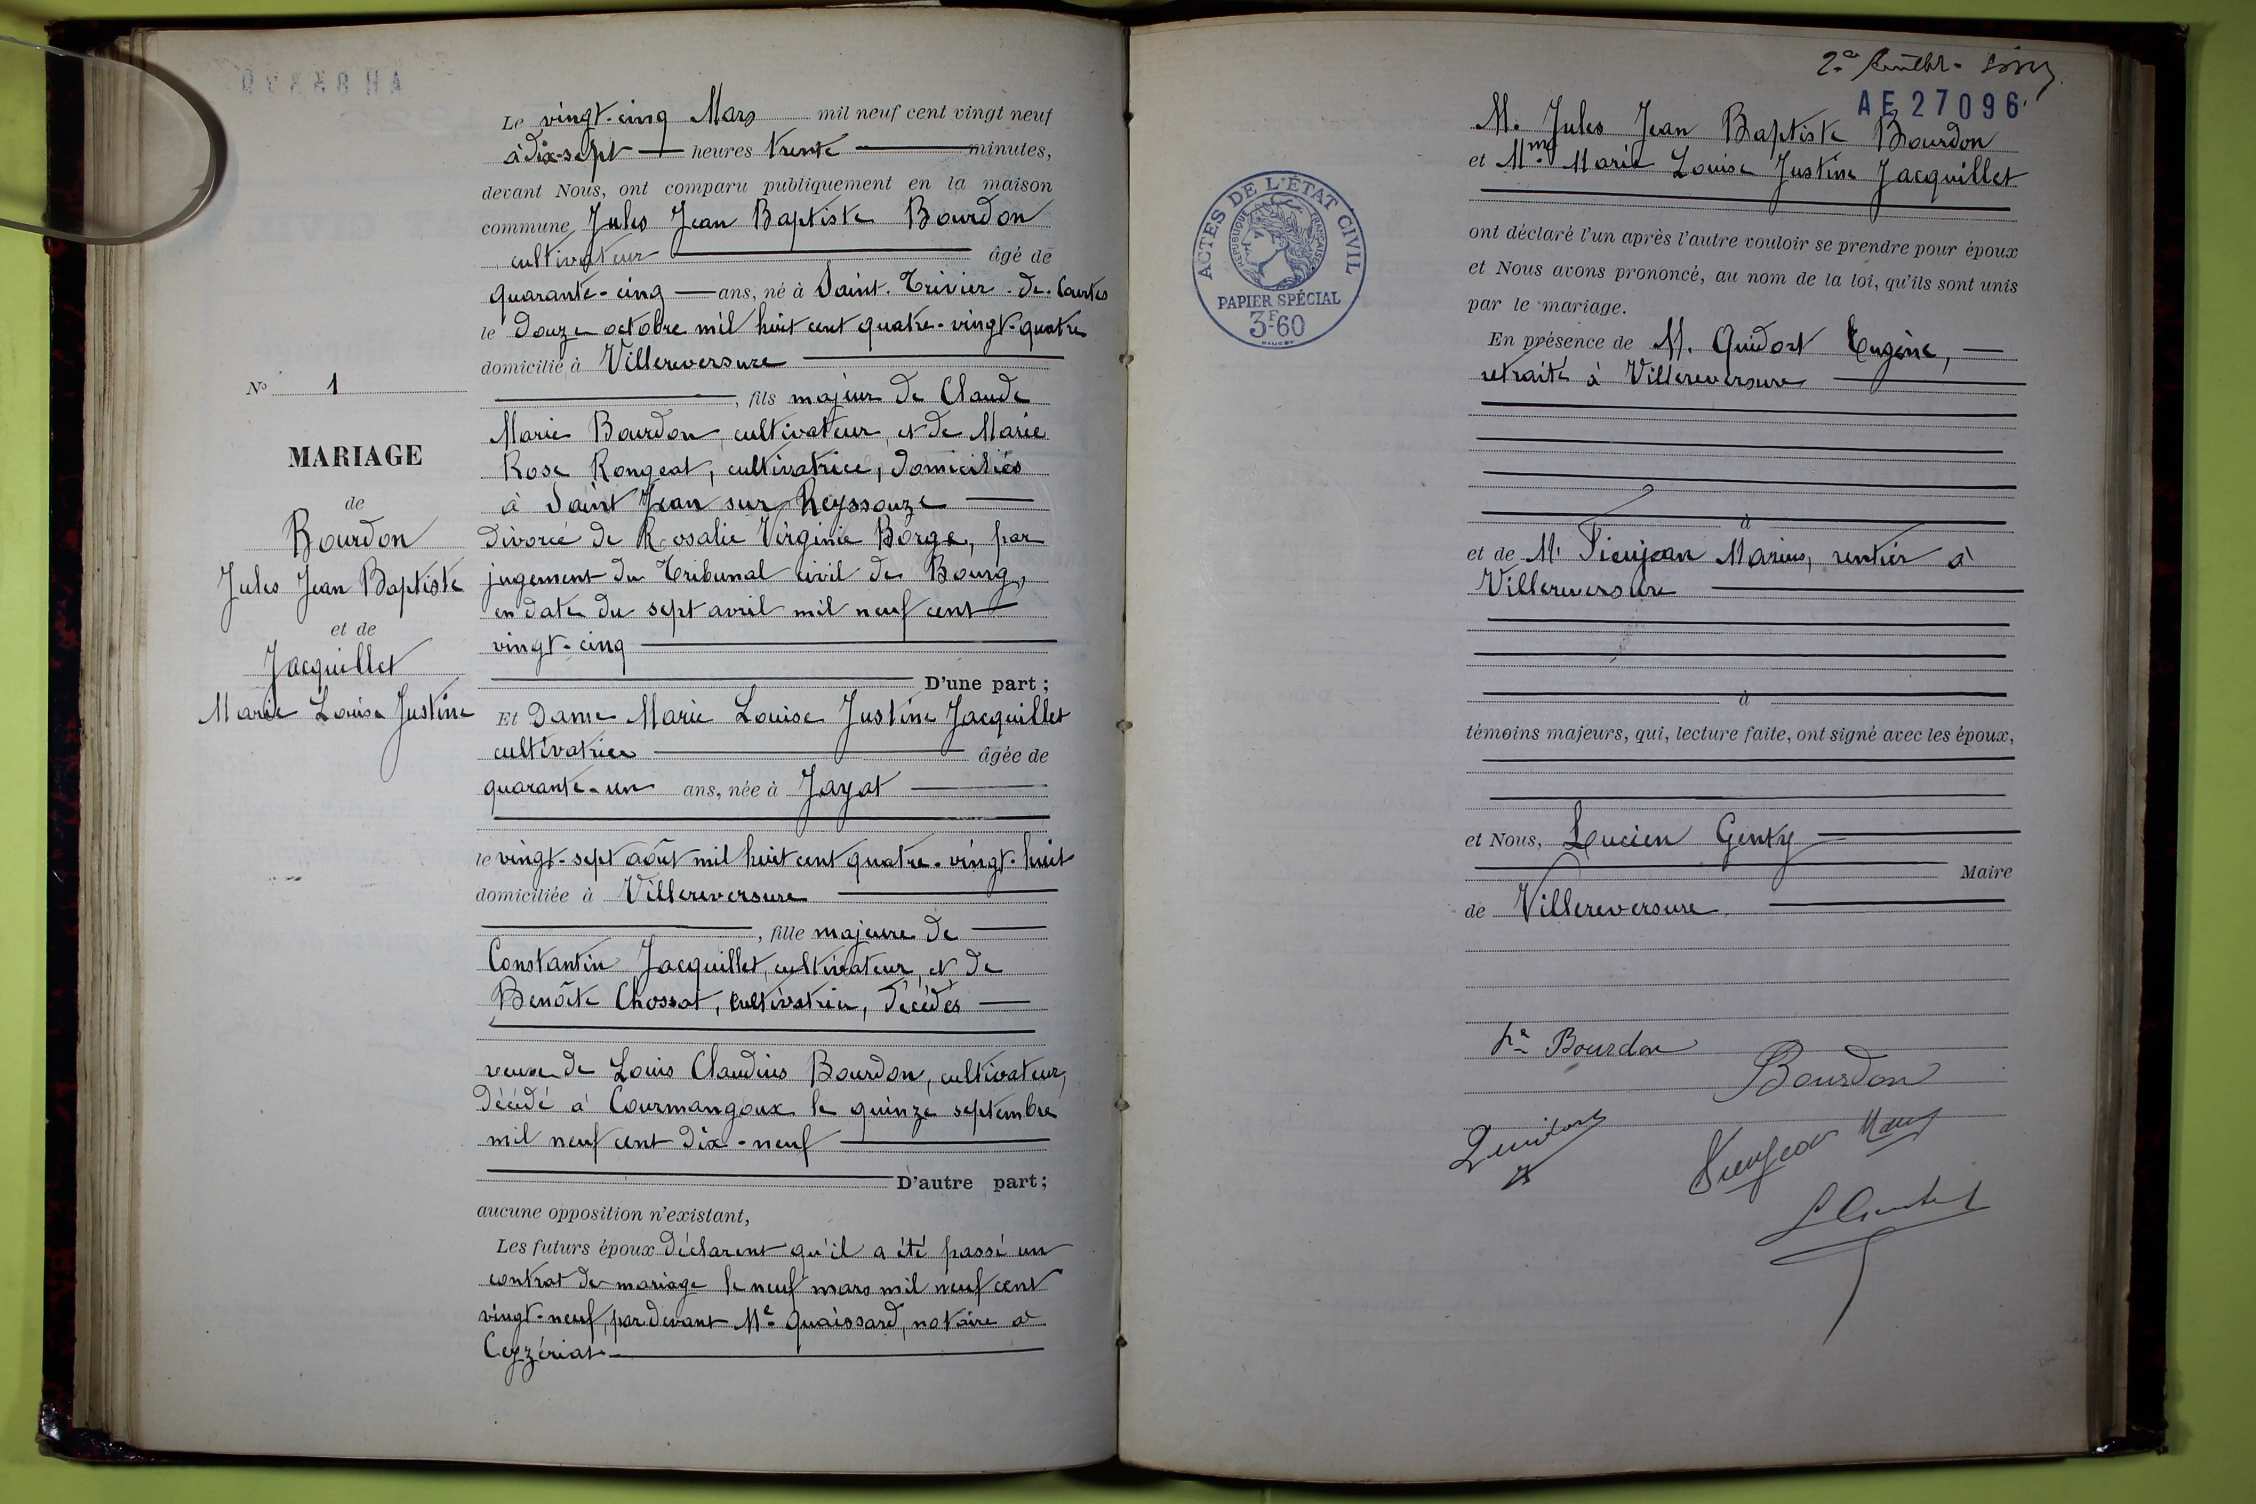 N° 1
MARIAGE
de
Bourdon
Jules Jean Baptiste
et de
Jacquillet
Marie Louise Justine
Le vingt-cinq Mars mil neuf cent vingt neuf
à dix-sept heures trente minutes,
devant Nous, ont comparu publiquement en la maison
commune Jules Jean Baptiste Bourdon
cultivateur âgé de
quarante-cinq ans, né à Saint-Trivier-de-Courtes
le douze octobre mil huit cent quatre-vingt-quatre
domicilié à Villereversure
, fils majeur de Claude
Marie Bourdon, cultivateur, et de Marie
Rose Rongeat, cultivatrice, domiciliés
à Saint Jean sur Reyssouze
divorcé de Rosalie Virginie Borge, par
jugement du Tribunal civil de Bourg,
en date du sept avril mil neuf cent
vingt-cinq
D'une part ;
Et Dame Marie Louise Justine Jacquillet
cultivatrice âgée de
quarante-un ans, née à Jayat
le vingt-sept août mil huit cent quatre-vingt-huit
domiciliée à Villereversure
, fille majeure de
Constantin Jacquillet, cultivateur, et de
Benoîte Chossat, cultivatrice, décédés
veuve de Louis Claudius Bourdon, cultivateur,
décédé à Courmangoux le quinze septembre
mil neuf cent dix-neuf
D'autre part ;
aucune opposition n'existant,
Les futurs époux déclarent qu'il a été passé un
contrat de mariage le neuf mars mil neuf cent
vingt-neuf, par devant Me Quaissard, notaire à
Ceyzériat
AE 27096
M. Jules Jean Baptiste Bourdon
et Mme Marie Louise Justine Jacquillet
ACTES DE L'ÉTAT CIVIL
RÉPUBLIQUE FRANÇAISE
PAPIER SPÉCIAL
3F60
ont déclaré l'un après l'autre vouloir se prendre pour époux
et Nous avons prononcé, au nom de la loi, qu'ils sont unis
par le mariage.
En présence de M. Guidort Eugène,
retraité à Villereversure
à
et de M. Pieujean Marius, rentier à
Villereversure
à
témoins majeurs, qui, lecture faite, ont signé avec les époux,
et Nous, Lucien Genty
Maire
de Villereversure
Bourdon
Bourdon